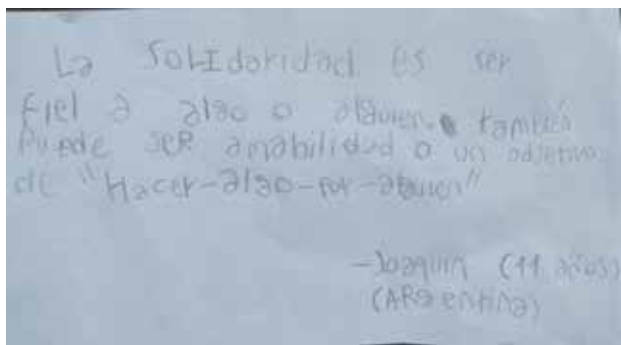 La SoLIdaridad es ser
fiel a algo o alguien. también
Puede SER amabilidad o un adjetivo
de "Hacer-algo-por-alguien"
-Joaquin (11 años)
(ARgentina)